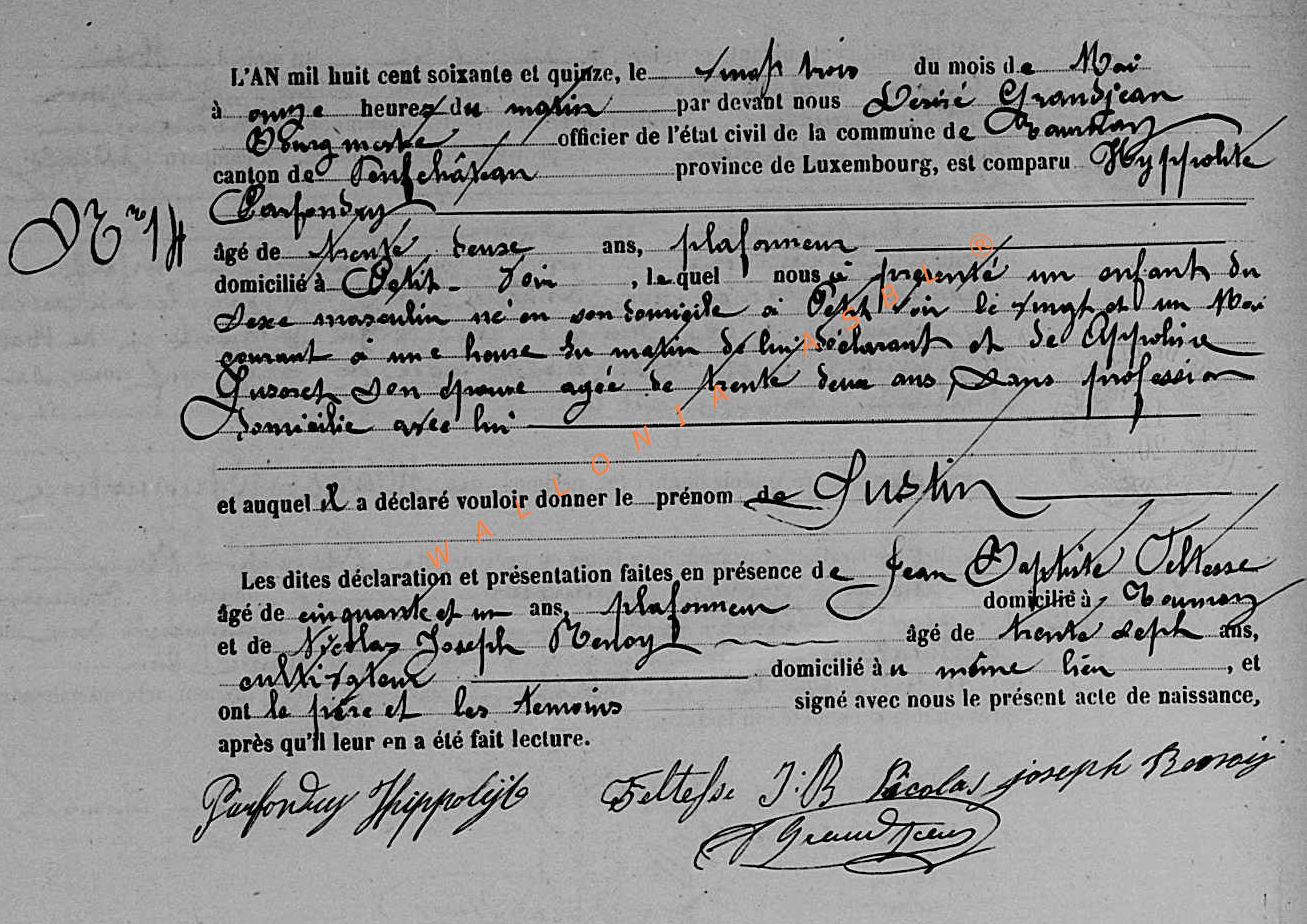 L'AN mil huit cent soixante et quinze, le vingt trois du mois de Mai
à onze heures du matin par devant nous Désiré Grandjean
Bourgmestre officier de l'état civil de la commune de Tournay
canton de Neufchâteau province de Luxembourg, est comparu Hyppolite
Parfondry
N° 14
âgé de trente deux ans, plafonneur
domicilié à Petit-Voir, lequel nous a présenté un enfant du
sexe masculin né en son domicile à Petit Voir le vingt et un Mai
courant à une heure du matin de lui déclarant et de Appoline
son épouse agée de trente deux ans, sans profession
Domicilie avec lui
et auquel il a déclaré vouloir donner le prénom de Justin
WALLONIA ASBL ®
Les dites déclaration et présentation faites en présence de Jean Baptiste Feltesse
âgé de cinquante et un ans, plafonneur domicilié à Tournay
et de Nicolas Joseph âgé de trente sept ans,
cultivateur domicilié au même lieu, et
ont le père et les temoins signé avec nous le présent acte de naissance,
après qu'il leur en a été fait lecture.
Parfondry Hippolyte Feltesse J:B Nicolas joseph
Grandjean